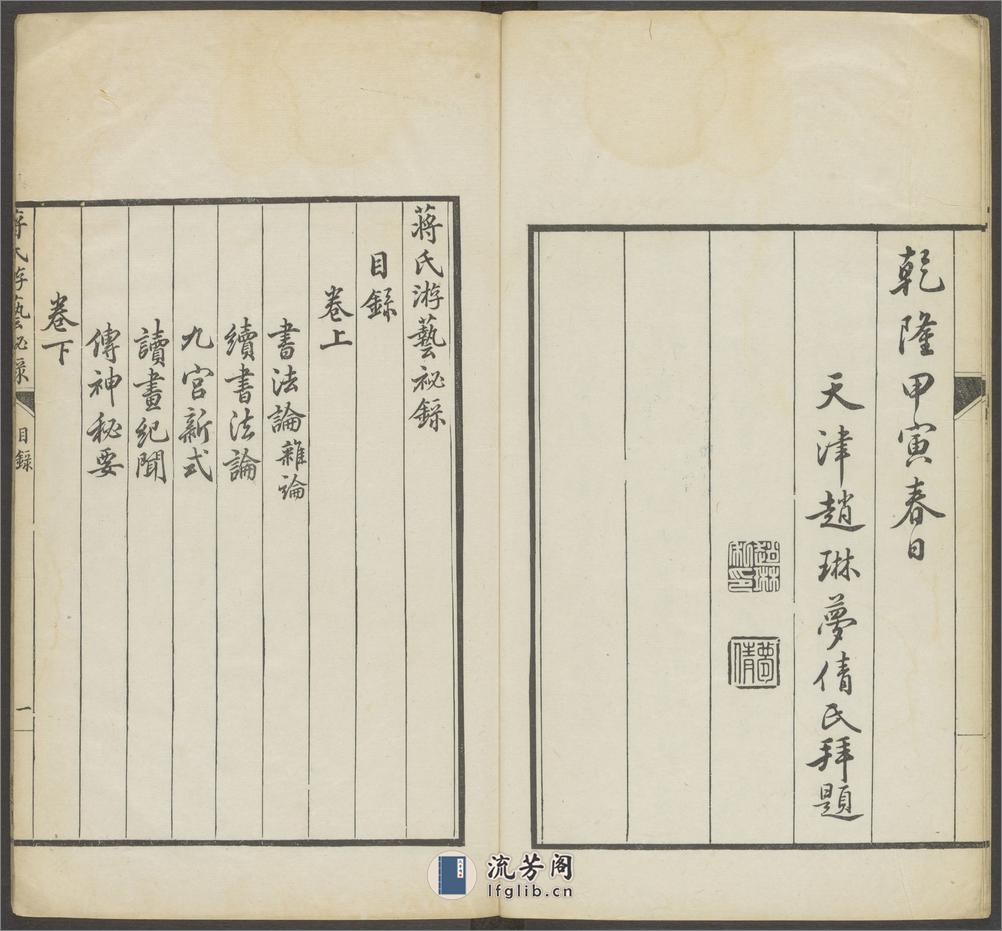 乾隆甲寅春日
天津趙琳夢倩氏拜題
趙琳私印
夢倩
蔣氏游藝祕錄
目錄
卷上
書法論雜論
續書法論
九宮新式
讀畫紀聞
傳神秘要
卷下
蔣氏游藝祕錄
目錄
一
流芳阁
lfglib.cn